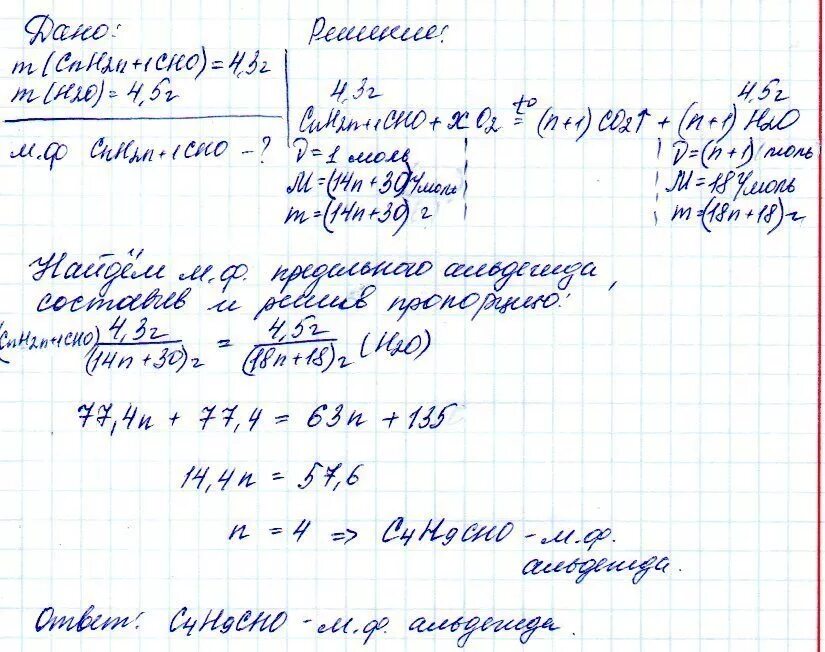 Дано:
m(CnH2n+1CHO)=4,3г
m(H2O)=4,5г
м.ф CnH2n+1CHO-?
Решение:
4,3г 4,5г
CnH2n+1CHO + xO2 t° = (n+1)CO2↑ + (n+1)H2O
ν=1 моль ν=(n+1) моль
M=(14n+30)г/моль M=18г/моль
m=(14n+30) г m=(18n+18)г
Найдём м.ф. предельного альдегида,
составив и решив пропорцию:
(CnH2n+1CHO) 4,3г/(14n+30)г = 4,5г/(18n+18)г (H2O)
77,4n + 77,4 = 63n + 135
14,4n = 57,6
n = 4 => C4H9CHO - м.ф.
альдегида.
Ответ: C4H9CHO - м.ф. альдегида.